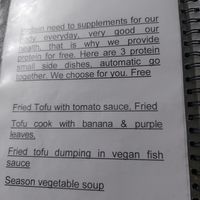 Protein need to supplements for our
body everyday, very good our
health, that is why we provide
protein for free. Here are 3 protein
small side dishes, automatic go
together. We choose for you. Free
Fried Tofu with tomato sauce, Fried
Tofu cook with banana & purple
leaves,
Fried tofu dumping in vegan fish
sauce
Season vegetable soup